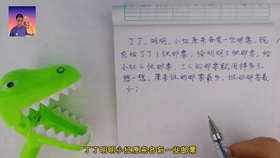 丁丁、明明、小红原来各有一些邮票,现
在给丁丁1张邮票,给明明3张邮票,给
小红6张邮票,三人的邮票就同样多了.
想一想,原来谁的邮票最多,谁的邮票最
少?
丁丁明明小红原来各有一些邮票